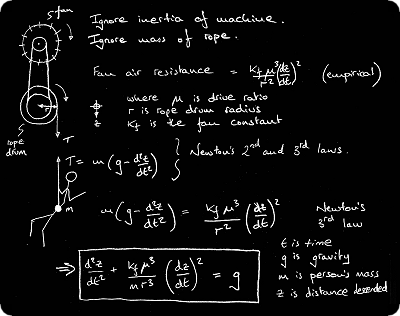 fan
Ignore inertia of machine.
Ignore mass of rope.
Fan air resistance = K_f μ³/r² (dz/dt)² (empirical)
where μ is drive ratio
r is rope drum radius
K_f is the fan constant
r
z
rope drum
T
T = m (g - d²z/dt²) } Newton's 2nd and 3rd laws.
m
m (g - d²z/dt²) = K_f μ³/r² (dz/dt)² Newton's 3rd law
⇒ d²z/dt² + K_f μ³/m r³ (dz/dt)² = g
t is time
g is gravity
m is person's mass
z is distance descended